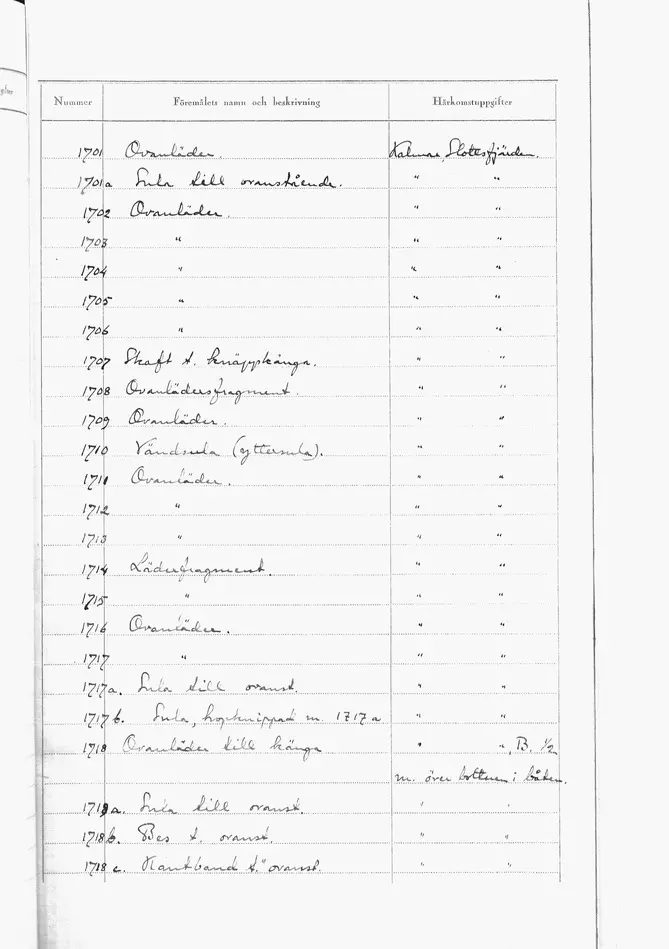 Nummer Föremålets namn och beskrivning Härkomstuppgifter
1701 Ovanläder. Kalmar, Slottsfjärden.
1701a Sula till ovanstående. " "
1702 Ovanläder. " "
1703 " " "
1704 " " "
1705 " " "
1706 " " "
1707 Skaft t. knäppkänga. " "
1708 Ovanlädersfragment. " "
1709 Ovanläder. " "
1710 Vändsula (yttersula). " "
1711 Ovanläder. " "
1712 " " "
1713 " " "
1714 Läderfragment. " "
1715 " " "
1716 Ovanläder. " "
1717 " " "
1717a. Sula till ovanst. " "
1717b. Sula, hopknippad m. 1717a " "
1718 Ovanläder till känga " ", B. 1/2
m. över bottnen i båten.
1718a. Sula till ovanst. " "
1718b. Bes t. ovanst. " "
1718c. Kantband t. ovanst. " "